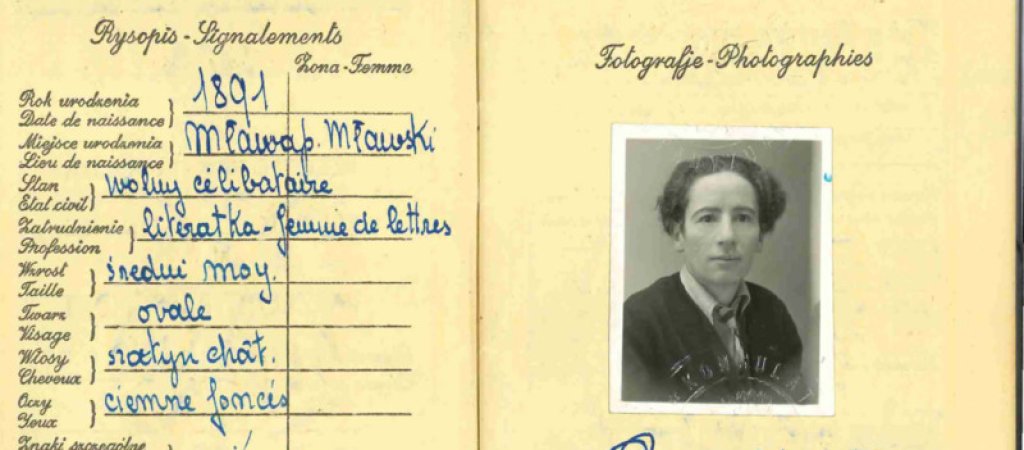 Rysopis - Signalements
Żona - Femme
Rok urodzenia
Date de naissance } 1891
Miejsce urodzenia
Lieu de naissance } Mława p. Mławski
Stan
Etat civil } wolny célibataire
Zatrudnienie
Profession } literatka - femme de lettres
Wzrost
Taille } średni moy.
Twarz
Visage } ovale
Włosy
Cheveux } szatyn chât.
Oczy
Yeux } ciemne foncés
Znaki szczególne
Fotografje - Photographies